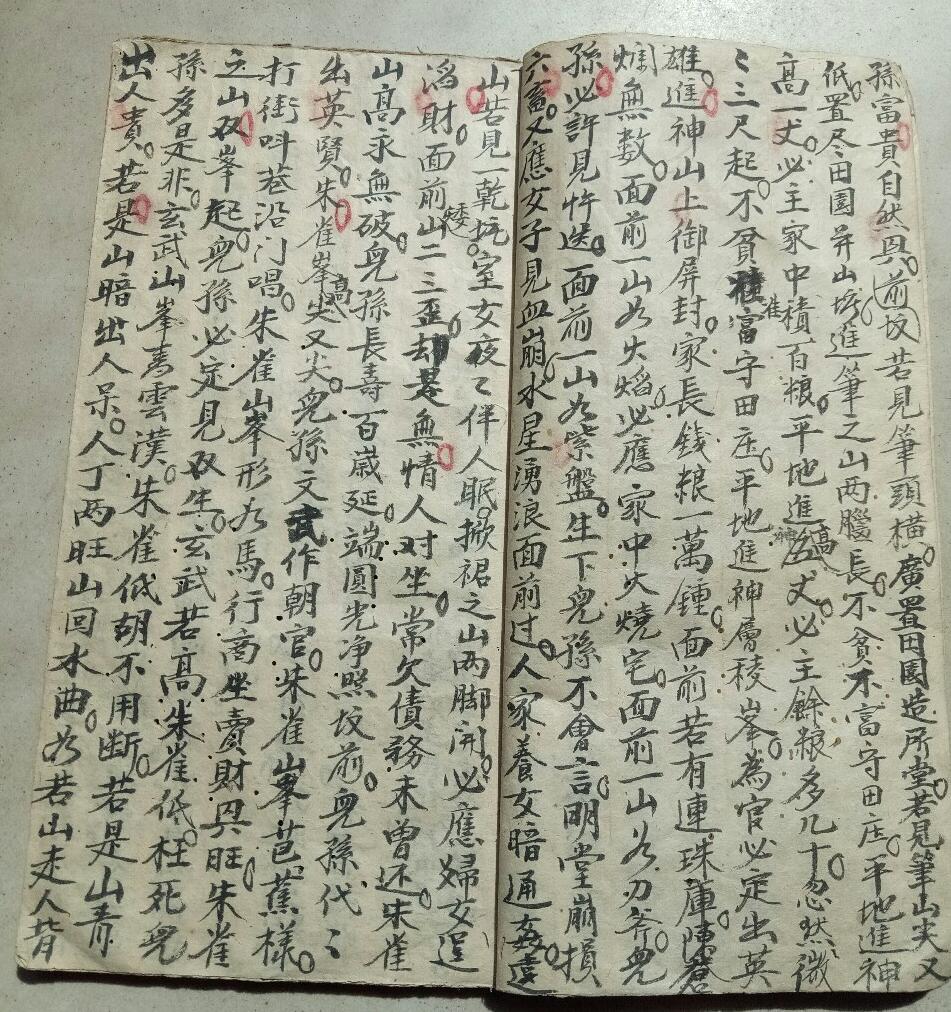 孫富貴自然興。前坟若見筆頭橫。廣置田園造所堂。若見筆山尖又
低。置尽田園并山塝。進筆之山两臘長。不貧不富守田庄。平地進神
高一丈。必主家中積百粮。平地進神高五丈。必主餘粮多几十。忽然微
〻三尺起。不貧不富守田庄。平地進神層稜峯。為官必定出英
雄。進神山上御屏封。家長錢粮一萬鍾。面前若有連珠庫。陳巷
爛無数。面前一山如火焰。必應家中火燒宅。面前一山如刃斧。兒
孫必許見忤逆。面前一山如紫盤。生下兒孫不會言。明堂崩損
六畜。又應女子見血崩。水星湧浪面前过。人家養女暗通姦。遠
山若見一乾坑。室女夜〻伴人眠。掀裙之山两脚開。必應婦女逞
淫財。面前山矮二三歪。却是無情人对坐。常欠債務未曾还。朱雀
山高永無破。兒孫長壽百歲延。端圓光净照坟前。兒孫代〻
出英賢。朱雀峯高尖又尖。兒孫文武作朝官。朱雀峯山芭蕉樣。
打街呌巷沿门唱。朱雀山峯形如馬。行商坐賣財興旺。朱雀
之山双峯起。兒孫必定見双生。玄武若高朱雀低。枉死兒
孫多是非。玄武山峯靑雲漢。朱雀低胡不用断。若是山青
出人貴。若是山暗出人呆。人丁两旺山回水曲。如若山走人背